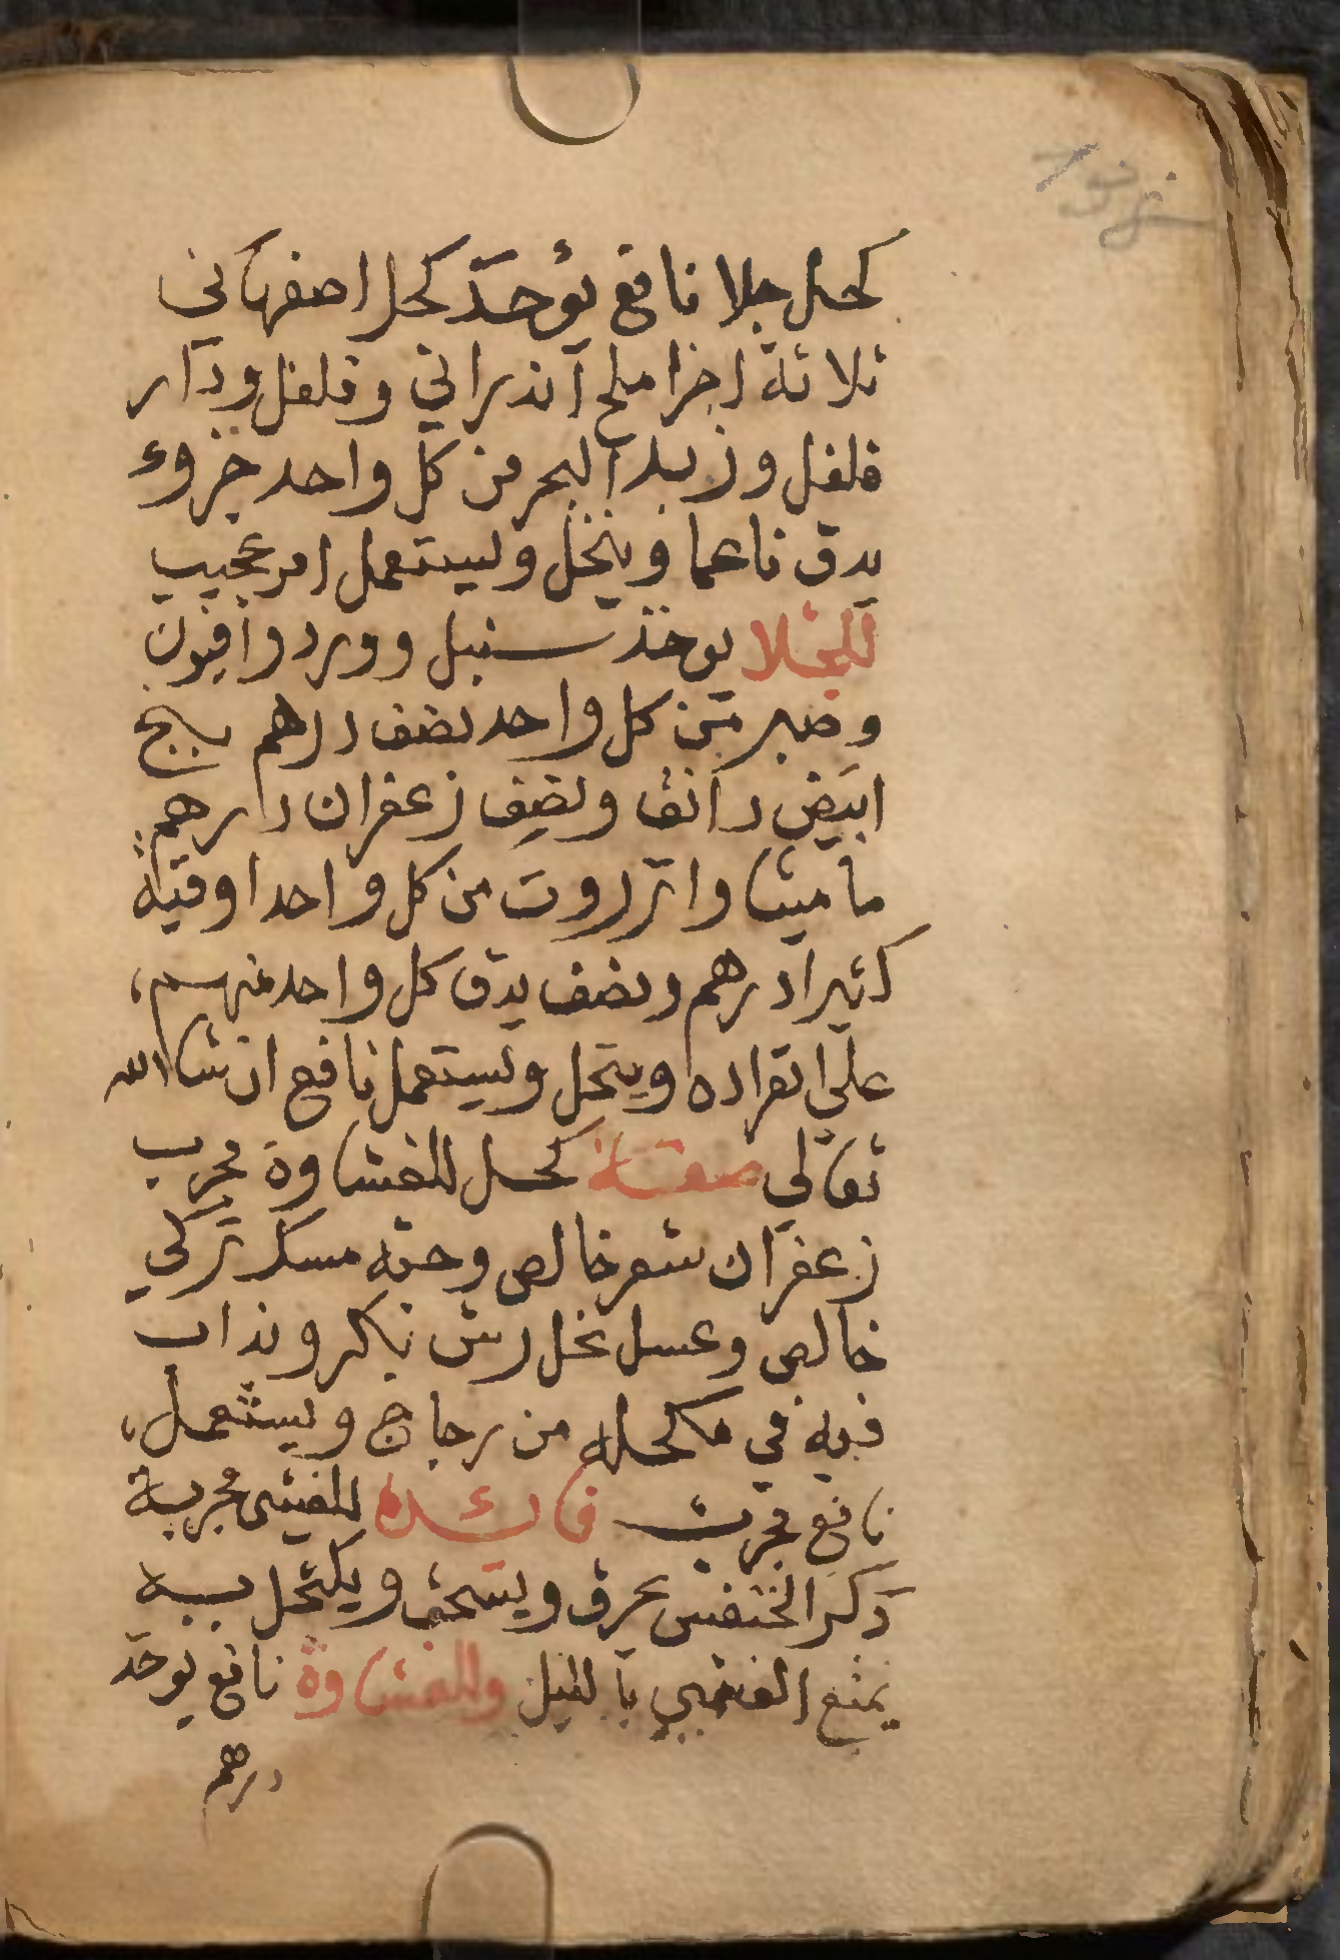 كحل جلا نافع يؤخذ كحل اصفهاني
ثلاثة اجزا ملح اندراني وفلفل ودار
فلفل وزبد البحر من كل واحد جزوء
يدق ناعما وينخل ويستعمل امر عجيب
للجلا يوخذ سنبل وورد وافيون
وصبر من كل واحد نصف درهم بنج
ابيض دانق ونصف زعفران دارهم
ماميثا وانزروت من كل واحد اوقية
كثيرا درهم ونصف يدق كل واحد منهم
على انفراده وينخل ويستعمل نافع ان شا الله
تعالى صفة كحل للغشاوة مجرب
زعفران شعر خالص وحبة مسك تركي
خالص وعسل نحل رش بكر ويذاب
فيه في مكحله من زجاج ويستعمل
نافع مجرب فائده للغشى مجربة
ذكر الخنفس يحرق ويسحق ويكتحل به
يمنع الغشى بالليل وللغشاوة نافع يوخذ
درهم